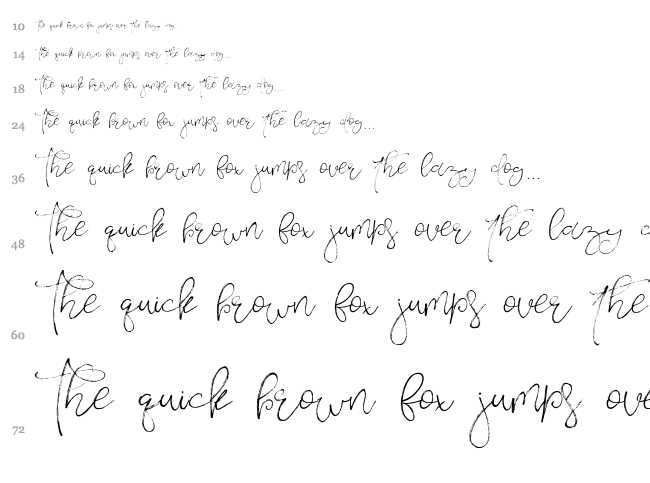 10 the quick brown fox jumps over the lazy dog...
14 the quick brown fox jumps over the lazy dog...
18 the quick brown fox jumps over the lazy dog...
24 the quick brown fox jumps over the lazy dog...
36 the quick brown fox jumps over the lazy dog...
48 the quick brown fox jumps over the lazy d
60 the quick brown fox jumps over the
72 the quick brown fox jumps ove